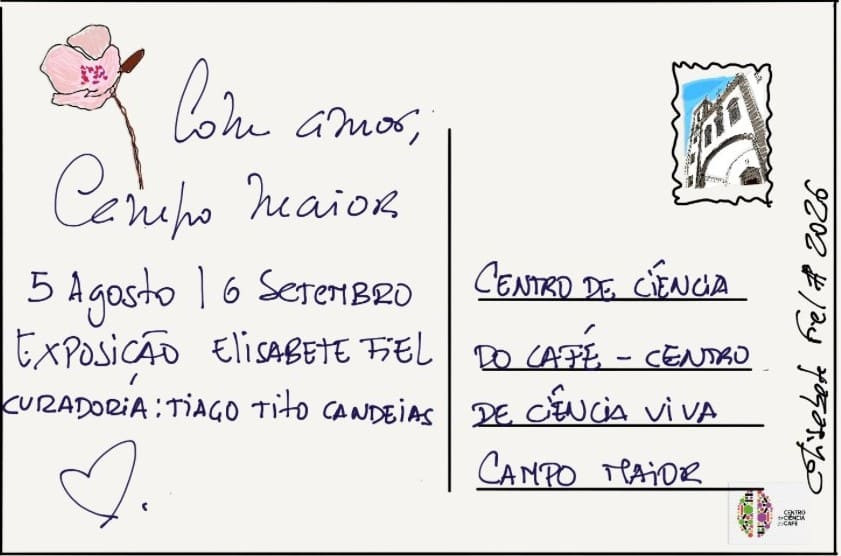 Com amor,
Campo Maior
5 Agosto | 6 Setembro
EXPOSIÇÃO ELISABETE FIEL
CURADÓRIA: TIAGO TITO CANDEIAS
CENTRO DE CIÊNCIA
DO CAFÉ - CENTRO
DE CIÊNCIA VIVA
CAMPO MAIOR
CENTRO
DE CIÊNCIA
DO CAFÉ
Elisabete Fiel # 2026